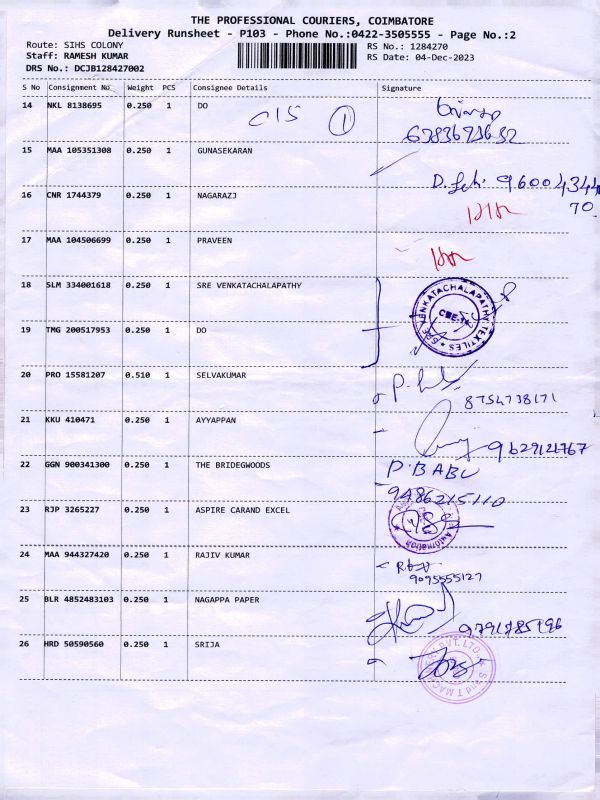 THE PROFESSIONAL COURIERS, COIMBATORE
Delivery Runsheet - P103 - Phone No.:0422-3505555 - Page No.:2
Route: SIHS COLONY RS No.: 1284270
Staff: RAMESH KUMAR RS Date: 04-Dec-2023
DRS No.: DCJB128427002
S No Consignment No Weight PCS Consignee Details Signature
14 NKL 8138695 0.250 1 DO
C15 1
15 MAA 105351308 0.250 1 GUNASEKARAN
16 CNR 1744379 0.250 1 NAGARAZJ
9600434470.
17 MAA 104506699 0.250 1 PRAVEEN
18 SLM 334001618 0.250 1 SRE VENKATACHALAPATHY
SRE VENKATACHALAPATHY TEXTILES
19 TMG 200517953 0.250 1 DO
20 PRO 15581207 0.510 1 SELVAKUMAR
8754738171
21 KKU 410471 0.250 1 AYYAPPAN
9629121767
22 GGN 900341300 0.250 1 THE BRIDEGWOODS P.BABU
9486215110
23 RJP 3265227 0.250 1 ASPIRE CARAND EXCEL
Automation
24 MAA 944327420 0.250 1 RAJIV KUMAR
9095555127
25 BLR 4852483103 0.250 1 NAGAPPA PAPER
26 HRD 50590560 0.250 1 SRIJA